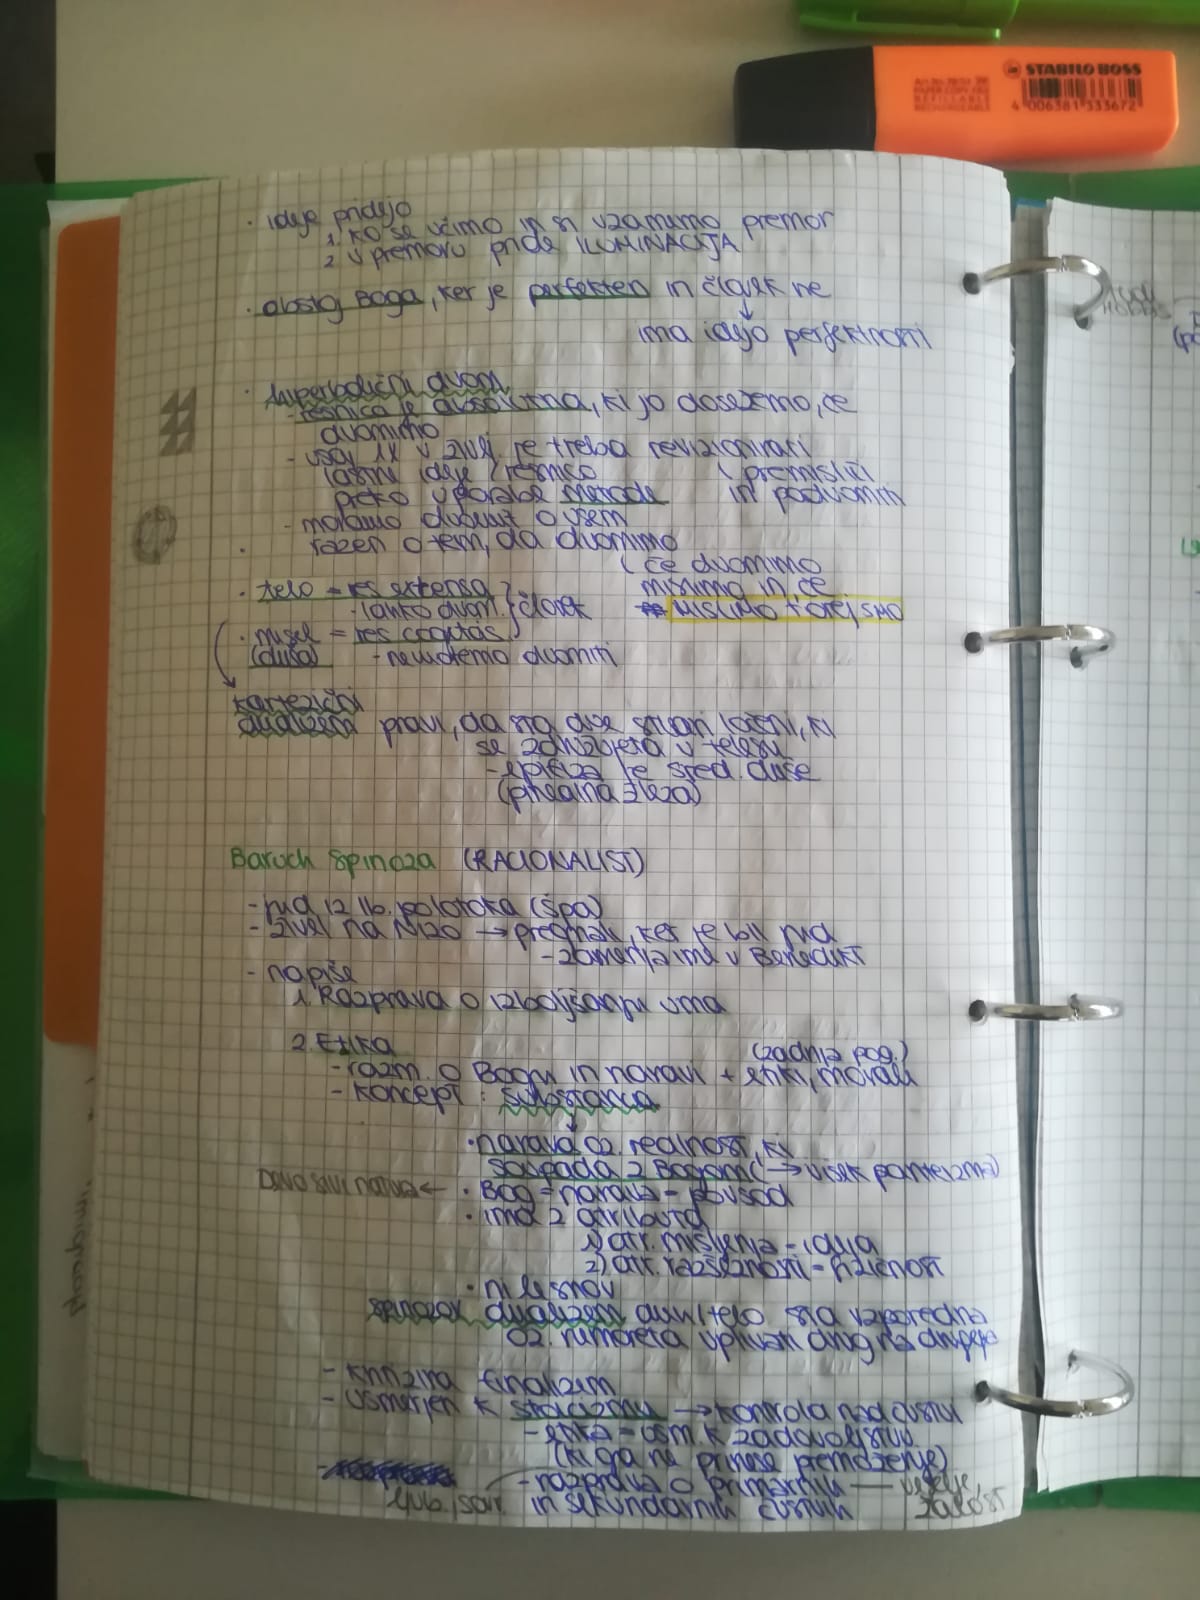 STABILO BOSS
4 006381 333672
· ideje pridejo
1. ko se učimo in si vzamemo premor
2. v premoru pride ILUMINACIJA
· obstoj Boga, ker je perfekten in človek ne
ima idejo perfektnosti
· hiperbolični dvom
- resnica je absolutna, ki jo dosežemo, če
dvomimo
- vsaj 1x v življ. je treba revizionirati
lastne ideje / resnico (premisliti
preko uporabe metode in podvomiti
- moramo dvomit o vsem
razen o tem, da dvomimo
(če dvomimo
· telo = res extensa mislimo in če
- lahko dvom. } človek MISLIMO TOREJ SMO
· misel = res cogitas
(duša) - ne moremo dvomiti
kartezični
dualizem pravi, da sta dve stvari ločeni, ki
se združujeta v telesu
- epifiza je sred. duše
(pinealna žleza)
Baruch Spinoza (RACIONALIST)
- jud iz Ib. polotoka (Špa)
- živel na Nizo → pregnali, ker je bil jud
- zamenja ime v Benedikt
- napiše
1. Razprava o izboljšanju uma
2. Etika (zadnja pog.)
- razm. o Bogu in naravi + etiki, morali
- koncept: substanca
· narava oz. realnost, ki
sovpada z Bogom (→ višek panteizma)
Deus sive natura ← · Bog = narava = povsod
· ima 2 atributa
1) atr. mišljenja = ideja
2) atr. razsežnosti = fizičnost
· ni le snov
Spinozov dualizem duh/telo sta vzporedna
oz. ne moreta vplivati drug na drugega
- kritizira finalizem
- usmerjen k stoicizmu → kontrola nad čustvi
- etika = usm. k zadovoljstvu
(ki ga ne prinese premoženje)
- razprava o primarnih — veselje,
ljub./sovr. in sekundarnih čustvih žalost